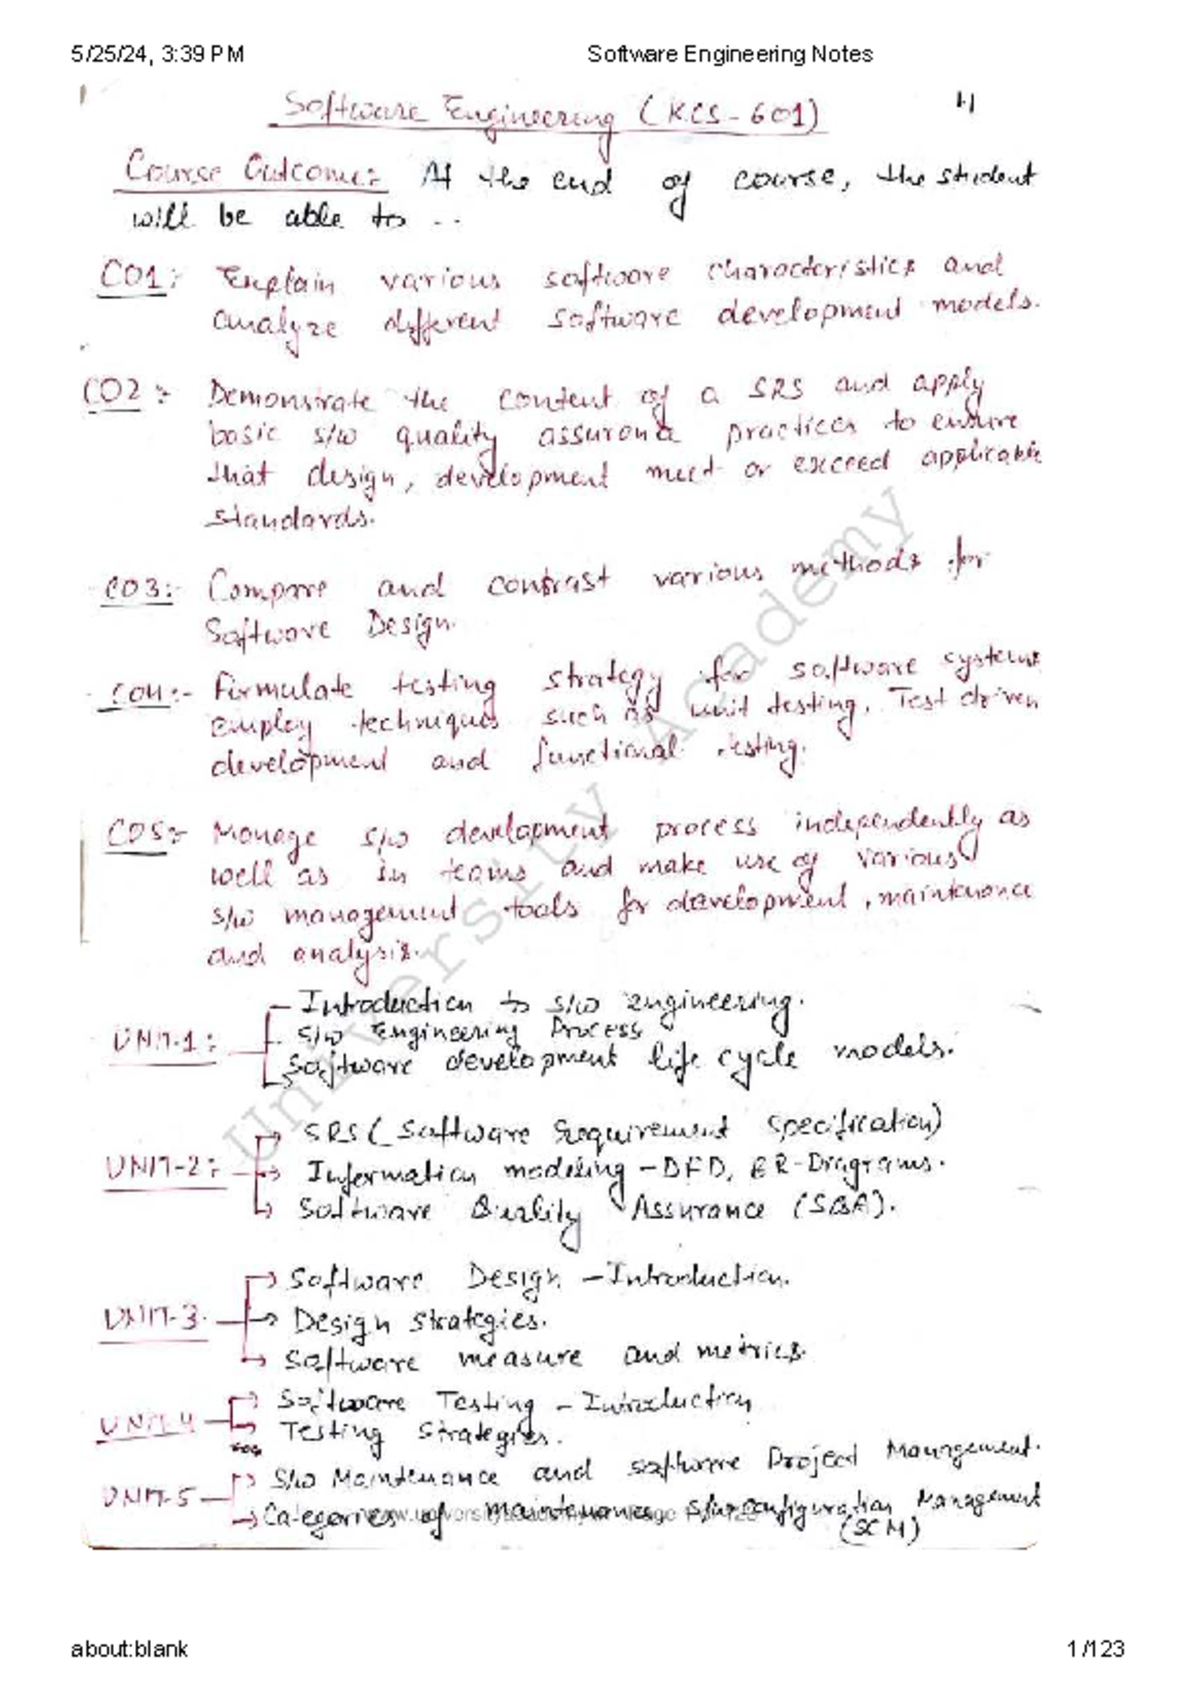 5/25/24, 3:39 PM Software Engineering Notes
Software Engineering (KCS-601)
Course Outcome:- At the end of course, the student
will be able to ..
CO1:- Explain various software characteristics and
analyze different software development models.
CO2:- Demonstrate the content of a SRS and apply
basic s/w quality assurance practices to ensure
that design, development meet or exceed applicable
standards.
CO3:- Compare and contrast various methods for
Software Design.
CO4:- Formulate testing strategy for software systems
employ techniques such as unit testing, Test driven
development and functional testing.
CO5:- Manage s/w development process independently as
well as in teams and make use of various
s/w management tools for development, maintenance
and analysis.
University Academy
Introduction to s/w engineering.
UNIT-1:- S/w Engineering Process
Software development life cycle models.
SRS (Software Requirement Specification)
UNIT-2:- Information modeling - DFD, ER-Diagrams.
Software Quality Assurance (SQA).
Software Design - Introduction.
UNIT-3. Design strategies.
Software measure and metrics.
Software Testing - Introduction
UNIT-4 Testing Strategies.
S/w Maintenance and software Project Management.
UNIT-5 Categories of maintenance s/w configuration Management
(SCM)
about:blank 1/123